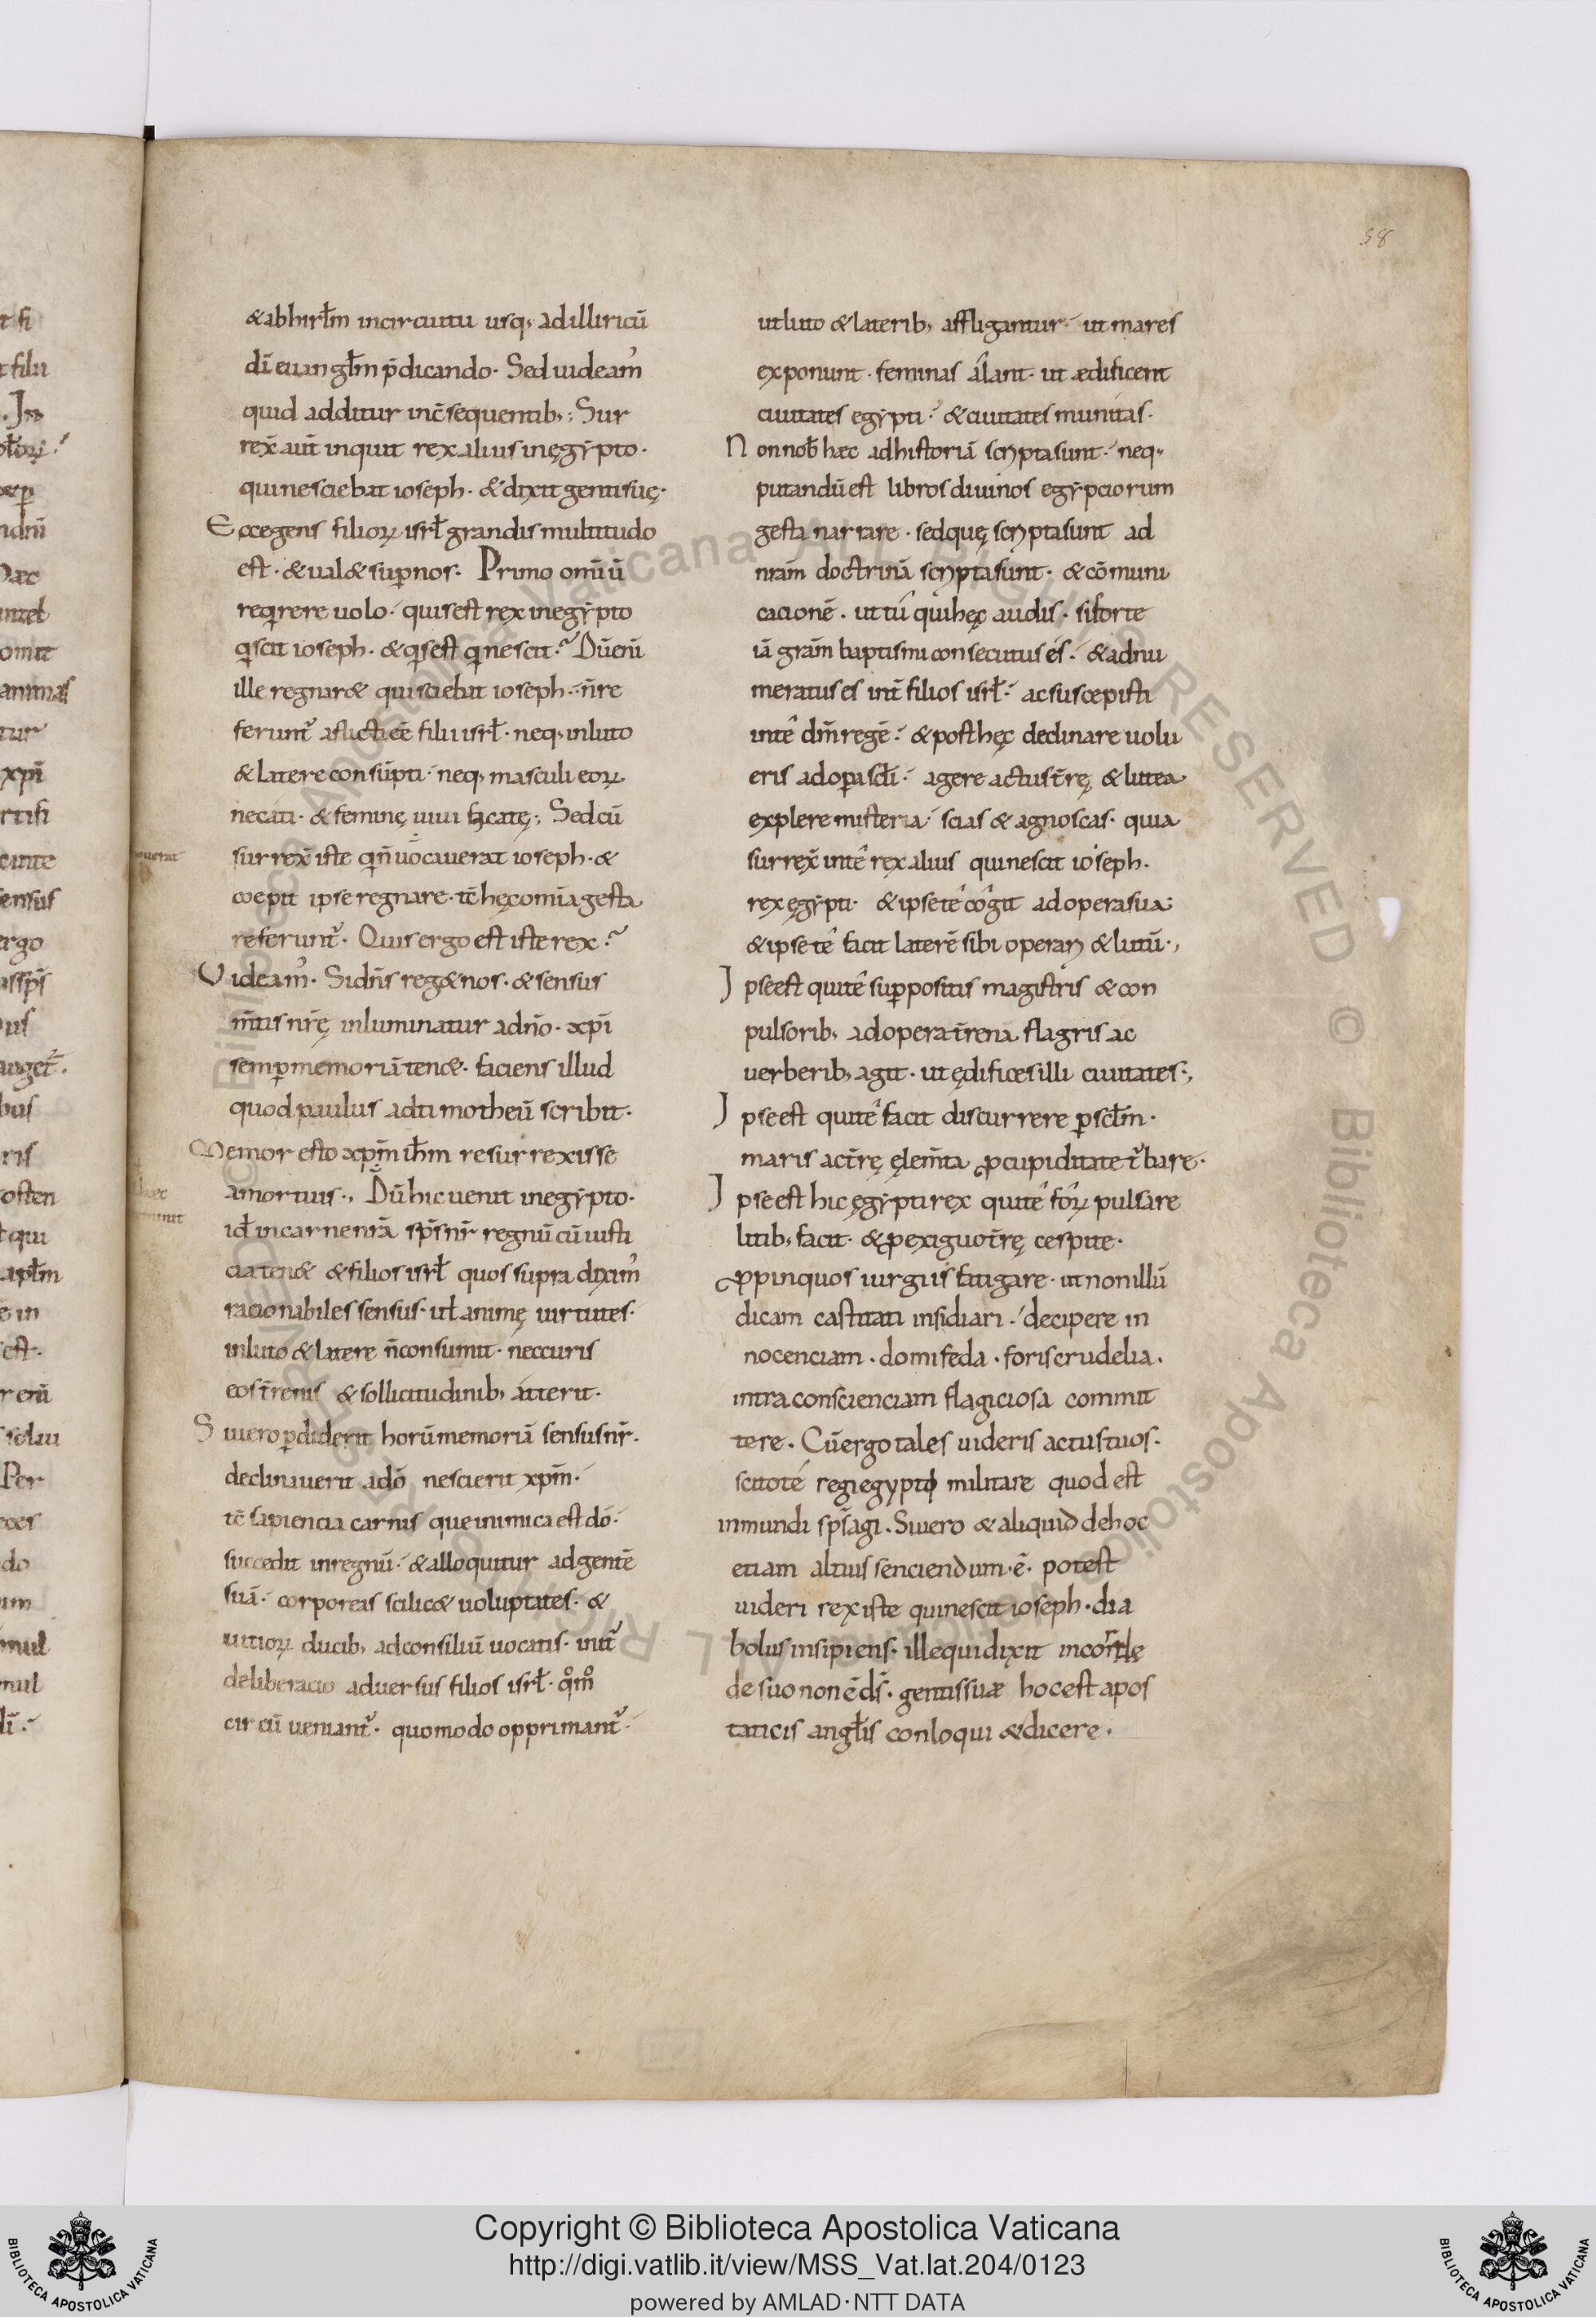 58
& ab hirłm in circuitu usq; ad illiricū
dī euangłm p̄dicando. Sed uideam᾽
quid additur in c̄sequentib;. Sur
rex̄ aut̄ inquit rex alius in ęgẏpto.
qui nesciebat ioseph. & dixit genti suę.
Ecce gens filioꝝ isrł grandis multitudo
est. & ual& sup̱ nos. Primo omū ū
req̱rere uolo. quis est rex in egẏpto
q̱ scit ioseph. & q̱s est q̱ nescit. Dū enī
ille regnar& qui sciebat ioseph. n̄ re
ferunt᷒ aflicti ēē filii isrł. neq; in luto
& latere consūpti. neq; masculi eoꝝ
necati. & feminę uiui
Sed cū
surrex̄ iste q̱ n̄ uocauerat ioseph. &
coepit ipse regnare. tc̄ hęc omīa gesta
referunt᷒. Quis ergo est iste rex.
Videam᾽. Si dn̄s reg& nos. & sensus
m̄tis nr̄ę inluminatur ad n̄o. xpī
semp̱ memoriā tene&. faciens illud
quod paulus ad timotheū scribit.
Memor esto xpm̄ ihm̄ resurrexisse
a mortuis. Dū hic uenit in egẏpto.
id̄ in carne nr̄ā sps̄ nr̄ regnū cū iusti
cia ten& & filios isrł quos supra dixim᾽
racionabiles sensus. ut animę uirtutes.
in luto & latere n̄ consumit. nec curis
eos t̄renis & sollicitudinib; atterit.
Si uero p̱diderit horū memoriā sensus nr̄.
declinauerit a dō nescierit xpm̄.
tc̄ sapiencia carnis que inimica est dō.
succedit in regnū. & alloquitur ad gentē
suā. corporeas scilic& uoluptates. &
uitioꝝ ducib; ad consiliū uocatis. init᷒
deliberacio aduersus filios isrł. qm̊
circū ueniant᷒. quomodo opprimant᷒.
ut luto & laterib; affligantur. ut mares
exponunt. feminas alant. ut ædificent
ciuitates egẏpti. & ciuitates munitas.
Non nob̄ hæc ad historiā scripta sunt. neq;
putandū est libros diuinos egẏpciorum
gesta narrare. sed quę scripta sunt ad
nram̄ doctrinā scripta sunt. & cōmuni
cacionē. ut tu qui hęc audis. si forte
iā gram̄ baptismi consecutus es. & adnu
meratus es int̄ filios isrł. ac suscepisti
in te dm̄ regē. & post hęc declinare uolu
eris ad op̱a sclī. agere actus t̄rę & lutea
explere misteria. scias & agnoscas. quia
surrex̄ in te rex alius qui nescit ioseph.
rex ęgẏpti. & ipse te cogit ad opera sua.
& ipse te facit laterē sibi operari & lutū.
Ipse est qui te sup̱positis magistris & con
pulsorib; ad opera t̄rena flagris ac
uerberib; agit. ut ędifices illi ciuitates.
Ipse est qui te facit discurrere p̱ scłm.
maris ac t̄rę ęlem̄ta ꝓ cupiditate t᷒bare.
Ipse est hic ęgẏpti rex qui te foꝝ pulsare
litib; facit. & ꝓ exiguo t̄rę cespite.
ꝓpinquos iurgiis fatigare. ut non illū
dicam castitati insidiari. decipere in
nocenciam. domi feda. foris crudelia.
intra conscienciam flagiciosa commit
tere. Cū ergo tales uideris actus tuos.
scito te regi egypti militare quod est
inmundi sps̄ agi. Si uero & aliquid de hoc
etiam altius senciendum ē. potest
uideri rex iste qui nescit ioseph. dia
bolus insipiens. ille qui dixit in corde
de suo non ē ds̄. gentis suæ hoc est apos
taticis angłis conloqui & dicere.
Copyright © Biblioteca Apostolica Vaticana
http://digi.vatlib.it/view/MSS_Vat.lat.204/0123
powered by AMLAD·NTT DATA